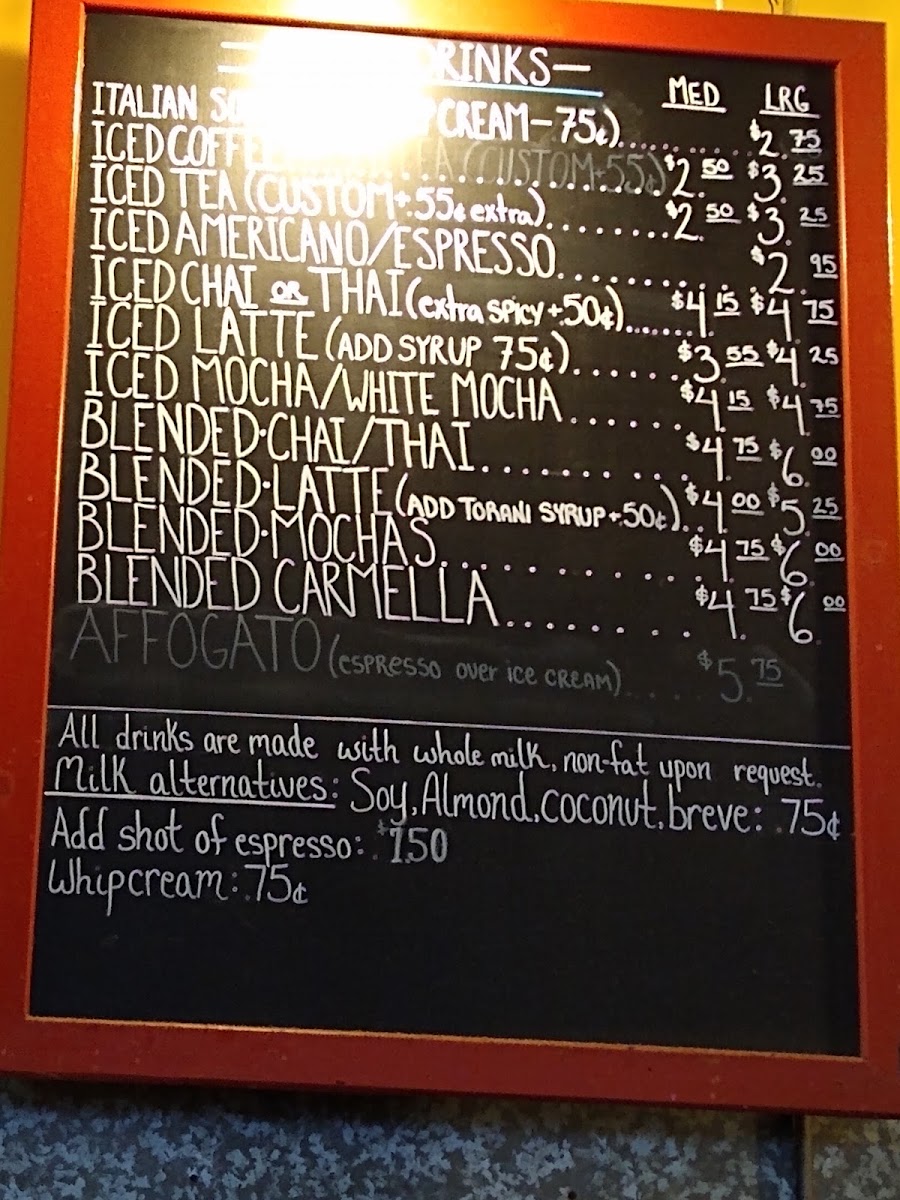 DRINKS—
MED LRG
ITALIAN CREAM – 75¢)........... $2.75
ICED COFFEE ............... $2.50 $3.25
ICED TEA (CUSTOM+.55¢ extra)......... $2.50 $3.25
ICED AMERICANO/ESPRESSO........... $2.95
ICED CHAI OR THAI (extra SPICY +.50¢)...... $4.15 $4.75
ICED LATTE (ADD SYRUP 75¢)....... $3.55 $4.25
ICED MOCHA/WHITE MOCHA...... $4.15 $4.75
BLENDED·CHAI/THAI.......... $4.75 $6.00
BLENDED·LATTE (ADD TORANI SYRUP +.50¢).. $4.00 $5.25
BLENDED·MOCHAS............ $4.75 $6.00
BLENDED CARMELLA......... $4.75 $6.00
AFFOGATO (espresso over ice cream)..... $5.75
All drinks are made with whole milk, non-fat upon request.
Milk alternatives: Soy, Almond, coconut, breve: .75¢
Add shot of espresso: $1.50
Whipcream: .75¢